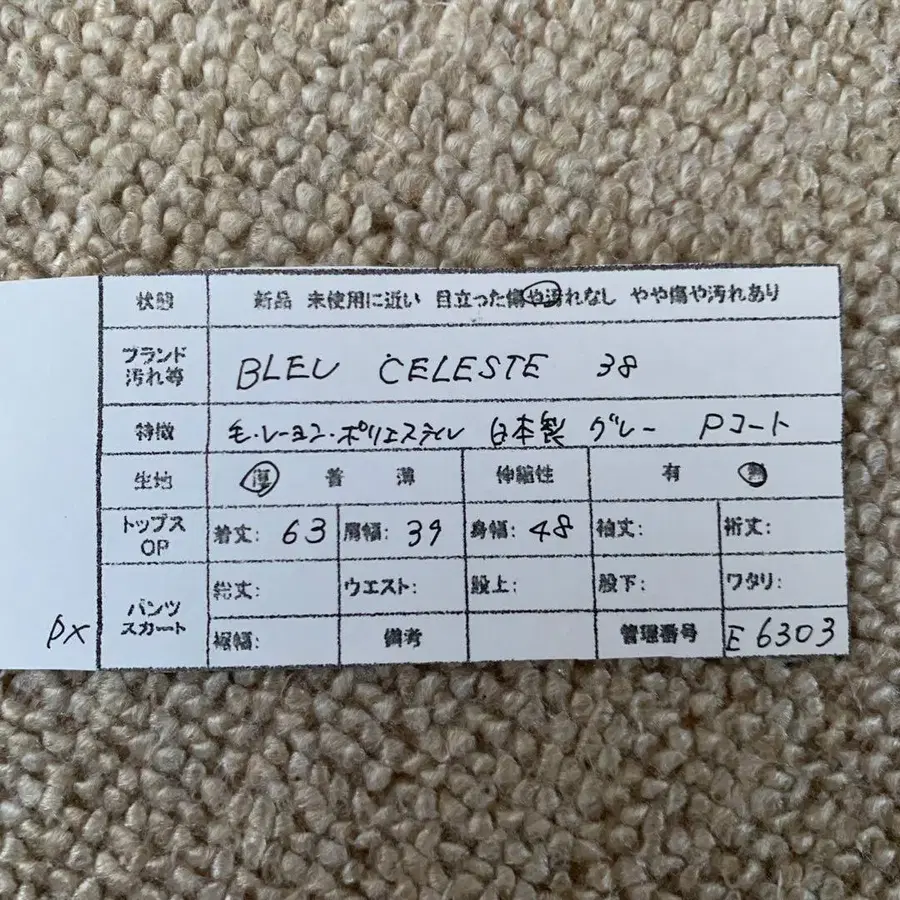 状態 新品 未使用に近い 目立った傷や汚れなし やや傷や汚れあり
ブランド
汚れ等
BLEU CELESTE 38
特徴 毛・レーヨン・ポリエステル 日本製 グレー Pコート
生地 厚 普 薄 伸縮性 有 無
トップス
OP
着丈: 63 肩幅: 39 身幅: 48 袖丈: 裄丈:
パンツ
スカート
総丈: ウエスト: 股上: 股下: ワタリ:
裾幅: 備考 管理番号 E6303
PX